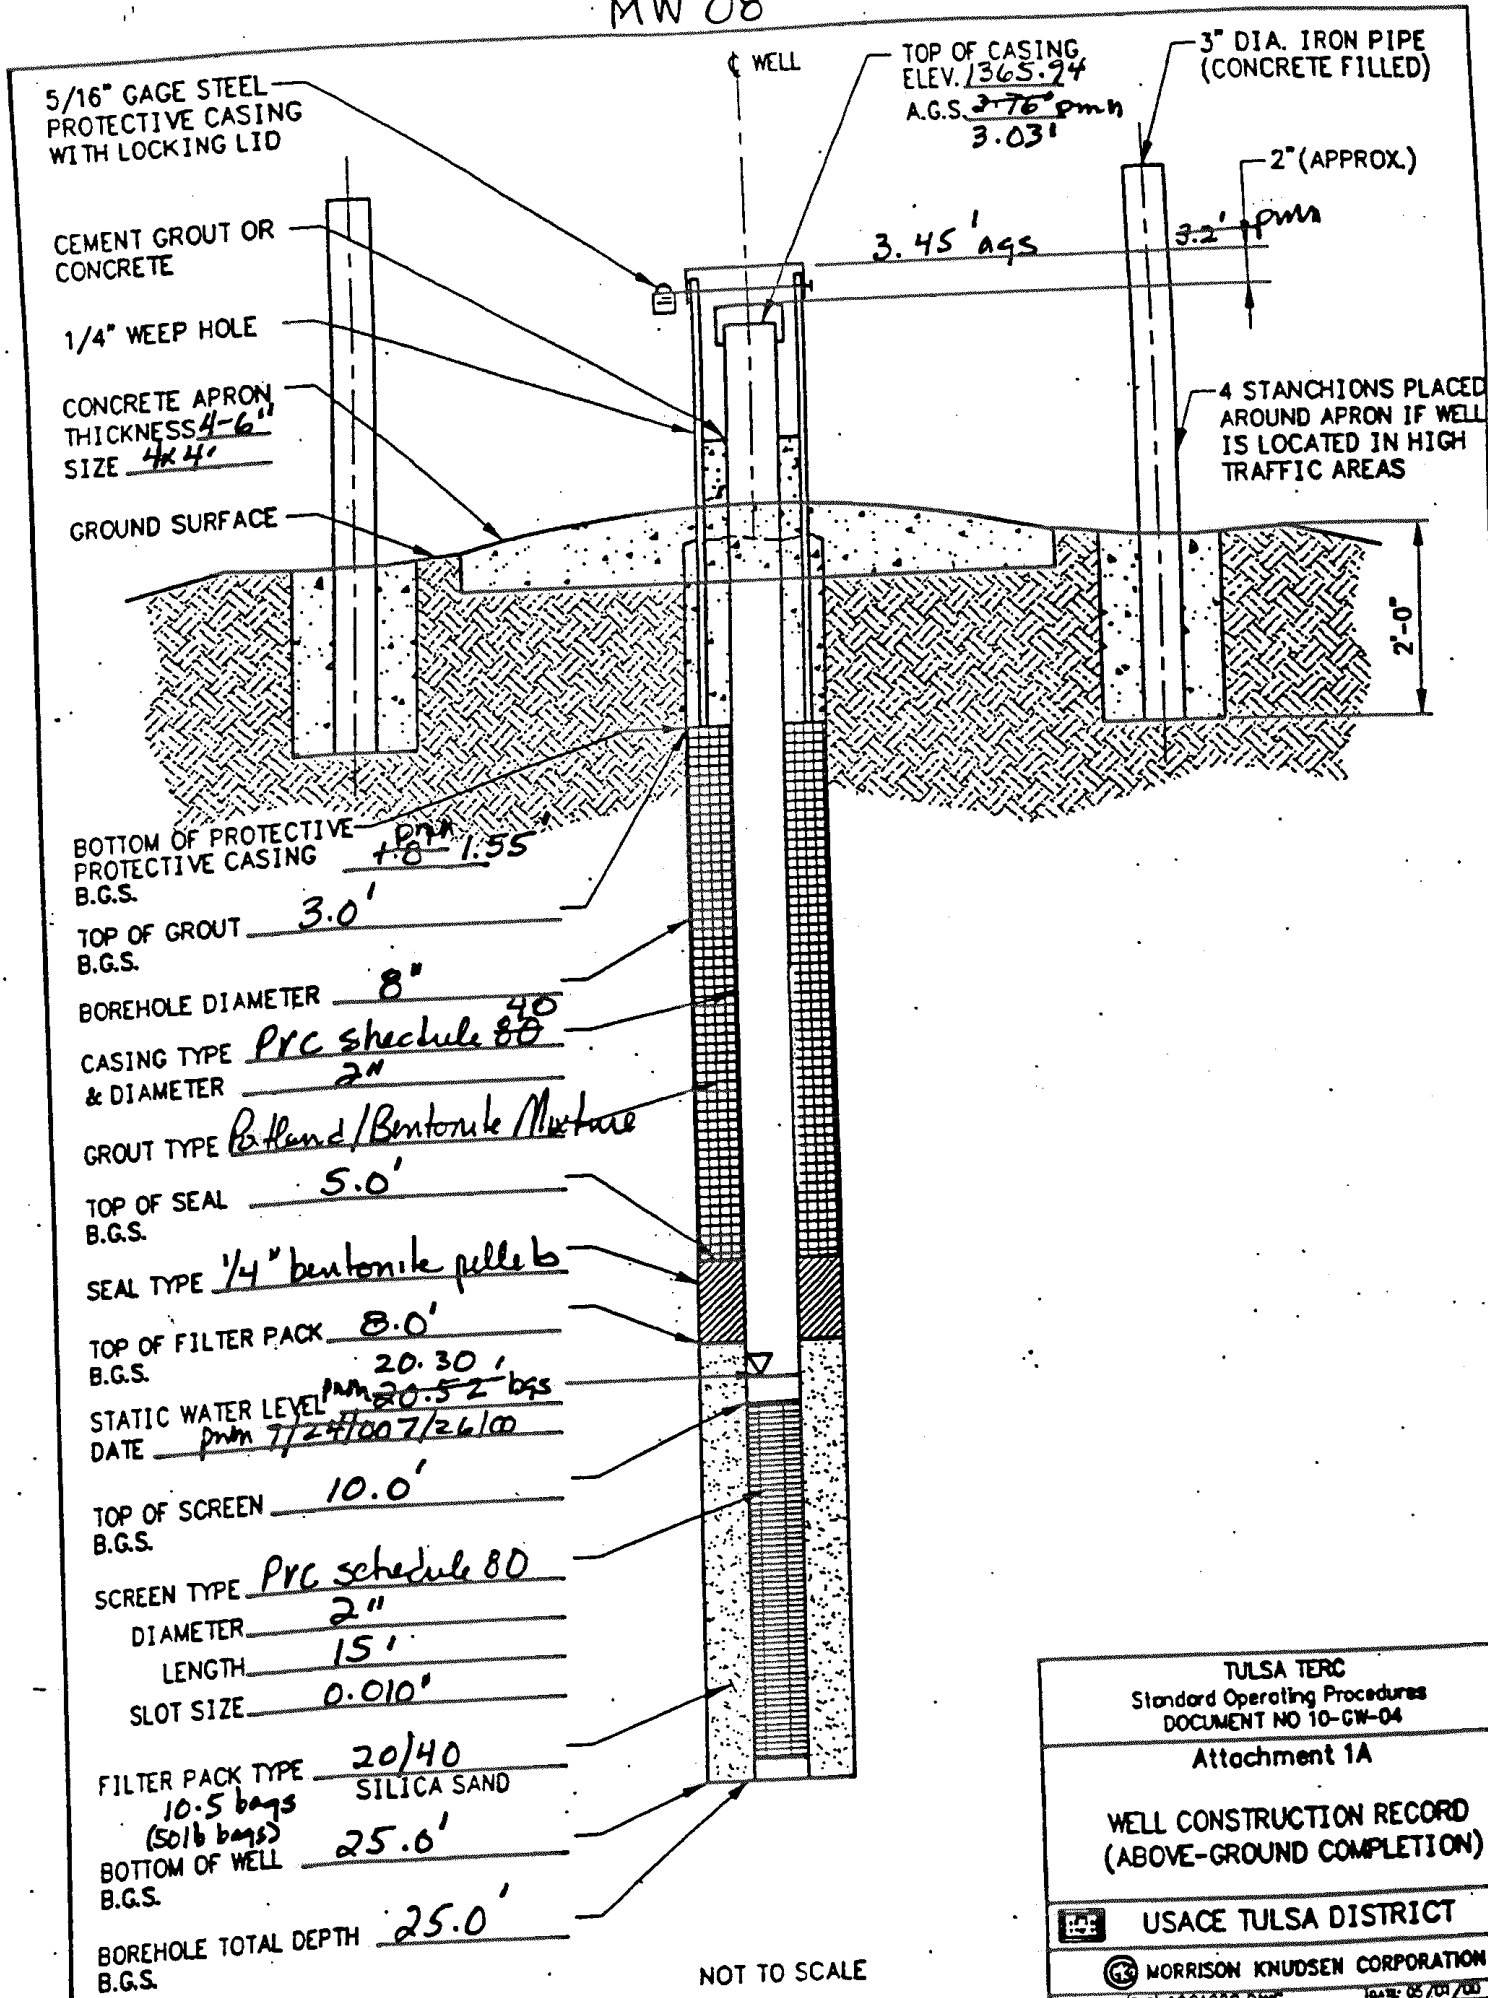 MW 08
5/16" GAGE STEEL
PROTECTIVE CASING
WITH LOCKING LID
℄ WELL
TOP OF CASING
ELEV. 1365.94
A.G.S. 3.76' pmn
3.03'
3" DIA. IRON PIPE
(CONCRETE FILLED)
2" (APPROX.)
CEMENT GROUT OR
CONCRETE
3.45' ags
3.2' pmn
1/4" WEEP HOLE
CONCRETE APRON
THICKNESS 4-6"
SIZE 4x4'
4 STANCHIONS PLACED
AROUND APRON IF WELL
IS LOCATED IN HIGH
TRAFFIC AREAS
GROUND SURFACE
2'-0"
BOTTOM OF PROTECTIVE
PROTECTIVE CASING pmn 1.8 1.55'
B.G.S.
TOP OF GROUT 3.0'
B.G.S.
BOREHOLE DIAMETER 8"
40
CASING TYPE PVC shedule 80
& DIAMETER 2"
GROUT TYPE Portland/Bentonite Mixture
TOP OF SEAL 5.0'
B.G.S.
SEAL TYPE 1/4" bentonite pellets
TOP OF FILTER PACK 8.0'
B.G.S.
20.30'
STATIC WATER LEVEL pmn 20.52 bgs
DATE pmn 7/24/00 7/26/00
TOP OF SCREEN 10.0'
B.G.S.
SCREEN TYPE PVC schedule 80
DIAMETER 2"
LENGTH 15'
SLOT SIZE 0.010"
FILTER PACK TYPE 20/40
SILICA SAND
10.5 bags
(50lb bags)
BOTTOM OF WELL 25.0'
B.G.S.
BOREHOLE TOTAL DEPTH 25.0'
B.G.S.
NOT TO SCALE
TULSA TERC
Standard Operating Procedures
DOCUMENT NO 10-GW-04
Attachment 1A
WELL CONSTRUCTION RECORD
(ABOVE-GROUND COMPLETION)
USACE TULSA DISTRICT
MORRISON KNUDSEN CORPORATION